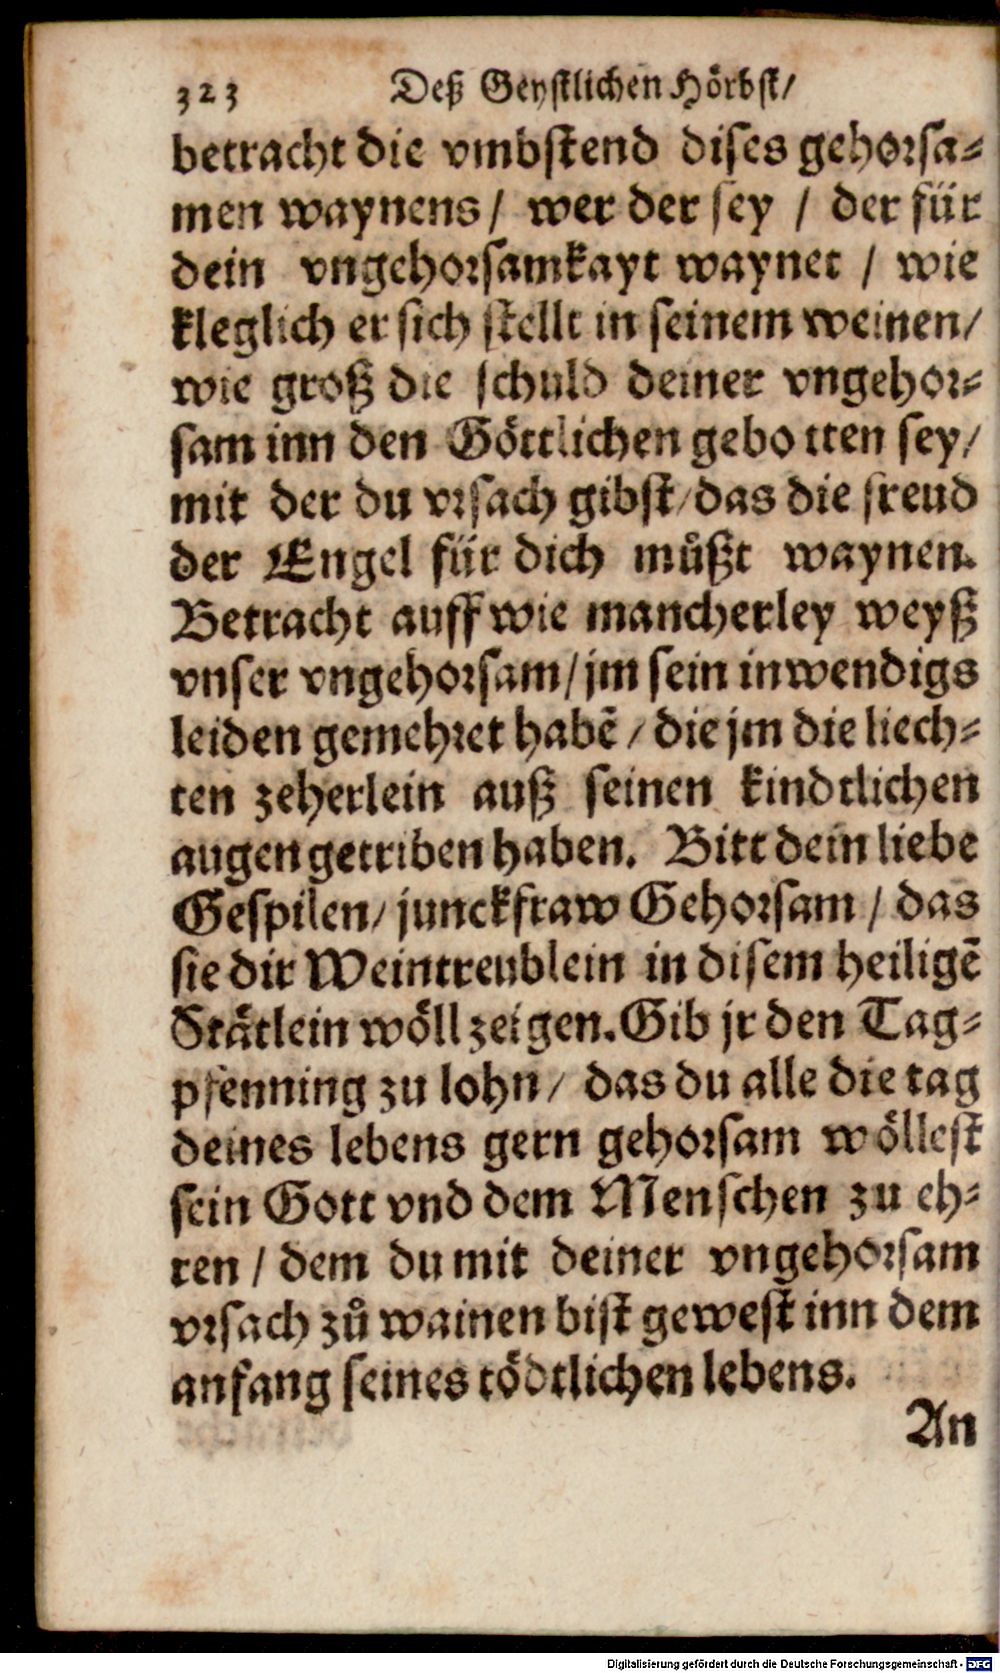 323 Deß Geystlichen Hörbst/
betracht die vmbstend dises gehorsa-
men waynens / wer der sey / der für
dein vngehorsamkayt waynet / wie
kleglich er sich stellt in seinem weinen/
wie groß die schuld deiner vngehor-
sam inn den Göttlichen gebotten sey/
mit der du vrsach gibst/das die freud
der Engel für dich můßt waynen.
Betracht auff wie mancherley weyß
vnser vngehorsam/jm sein inwendigs
leiden gemehret habẽ / die jm die liech-
ten zeherlein auß seinen kindtlichen
augen getriben haben. Bitt dein liebe
Gespilen/ junckfraw Gehorsam / das
sie dir Weintreublein in disem heiligẽ
Stätlein wöll zeigen. Gib jr den Tag-
pfenning zu lohn/ das du alle die tag
deines lebens gern gehorsam wöllest
sein Gott vnd dem Menschen zu eh-
ren / dem du mit deiner vngehorsam
vrsach zů wainen bist gewest inn dem
anfang seines tödtlichen lebens.
An
Digitalisierung gefördert durch die Deutsche Forschungsgemeinschaft - DFG